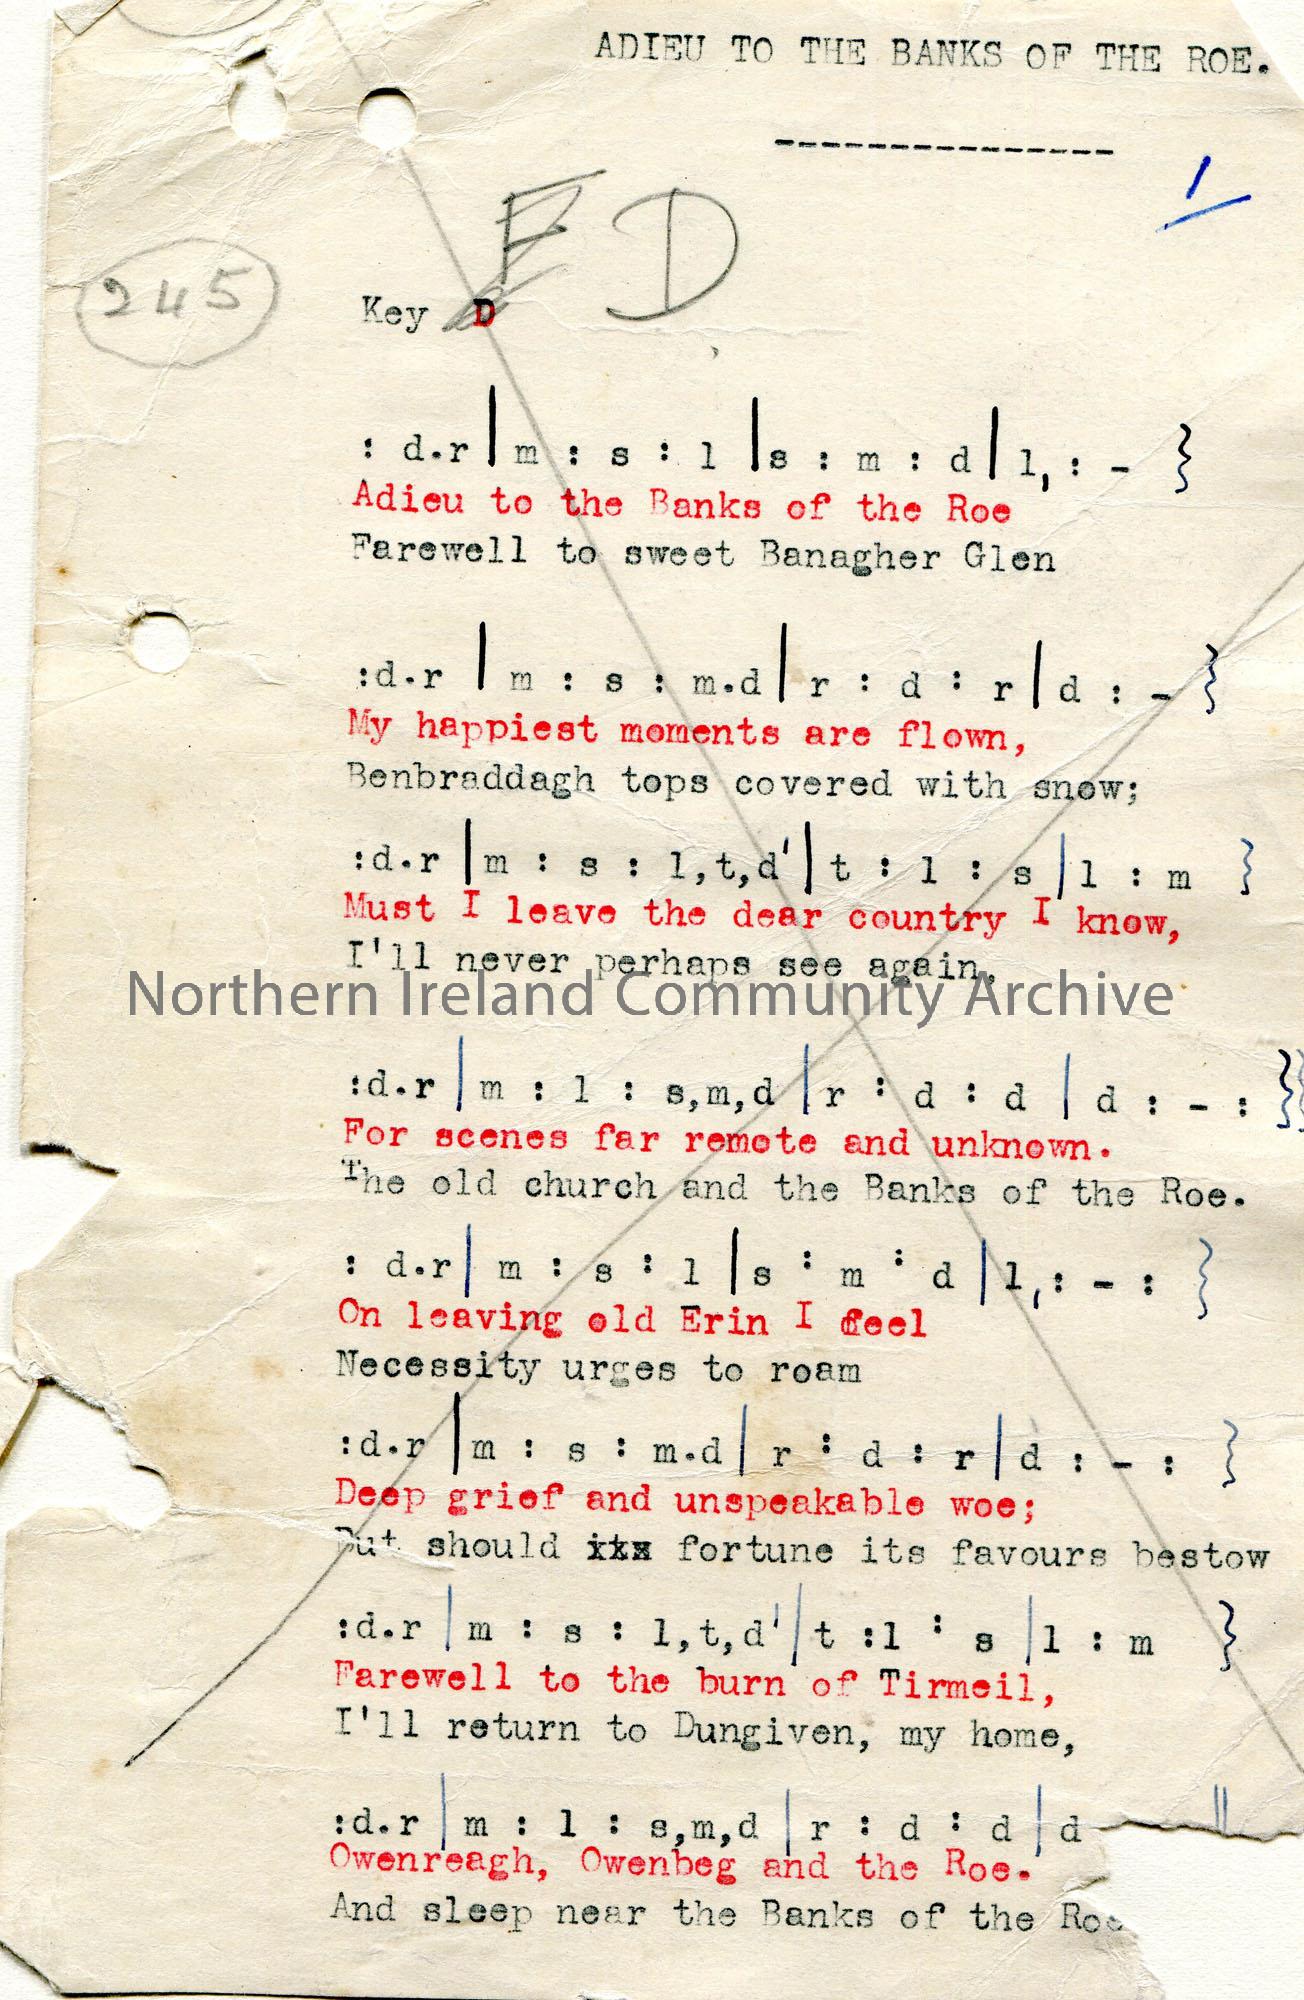 ADIEU TO THE BANKS OF THE ROE.
---------------
1
E D
245
Key D
: d.r | m : s : l | s : m : d | l, : - }
Adieu to the Banks of the Roe
Farewell to sweet Banagher Glen
:d.r | m : s : m.d | r : d : r | d : - }
My happiest moments are flown,
Benbraddagh tops covered with snow;
:d.r | m : s : l,t,d' | t : l : s | l : m }
Must I leave the dear country I know,
I'll never perhaps see again,
Northern Ireland Community Archive
:d.r | m : l : s,m,d | r : d : d | d : - : }}
For scenes far remote and unknown.
The old church and the Banks of the Roe.
: d.r | m : s : l | s : m : d | l, : - : }
On leaving old Erin I feel
Necessity urges to roam
:d.r | m : s : m.d | r : d : r | d : - : }
Deep grief and unspeakable woe;
But should xxx fortune its favours bestow
:d.r | m : s : l,t,d' | t :l : s | l : m }
Farewell to the burn of Tirmeil,
I'll return to Dungiven, my home,
:d.r | m : l : s,m,d | r : d : d | d ||
Owenreagh, Owenbeg and the Roe.
And sleep near the Banks of the Roe